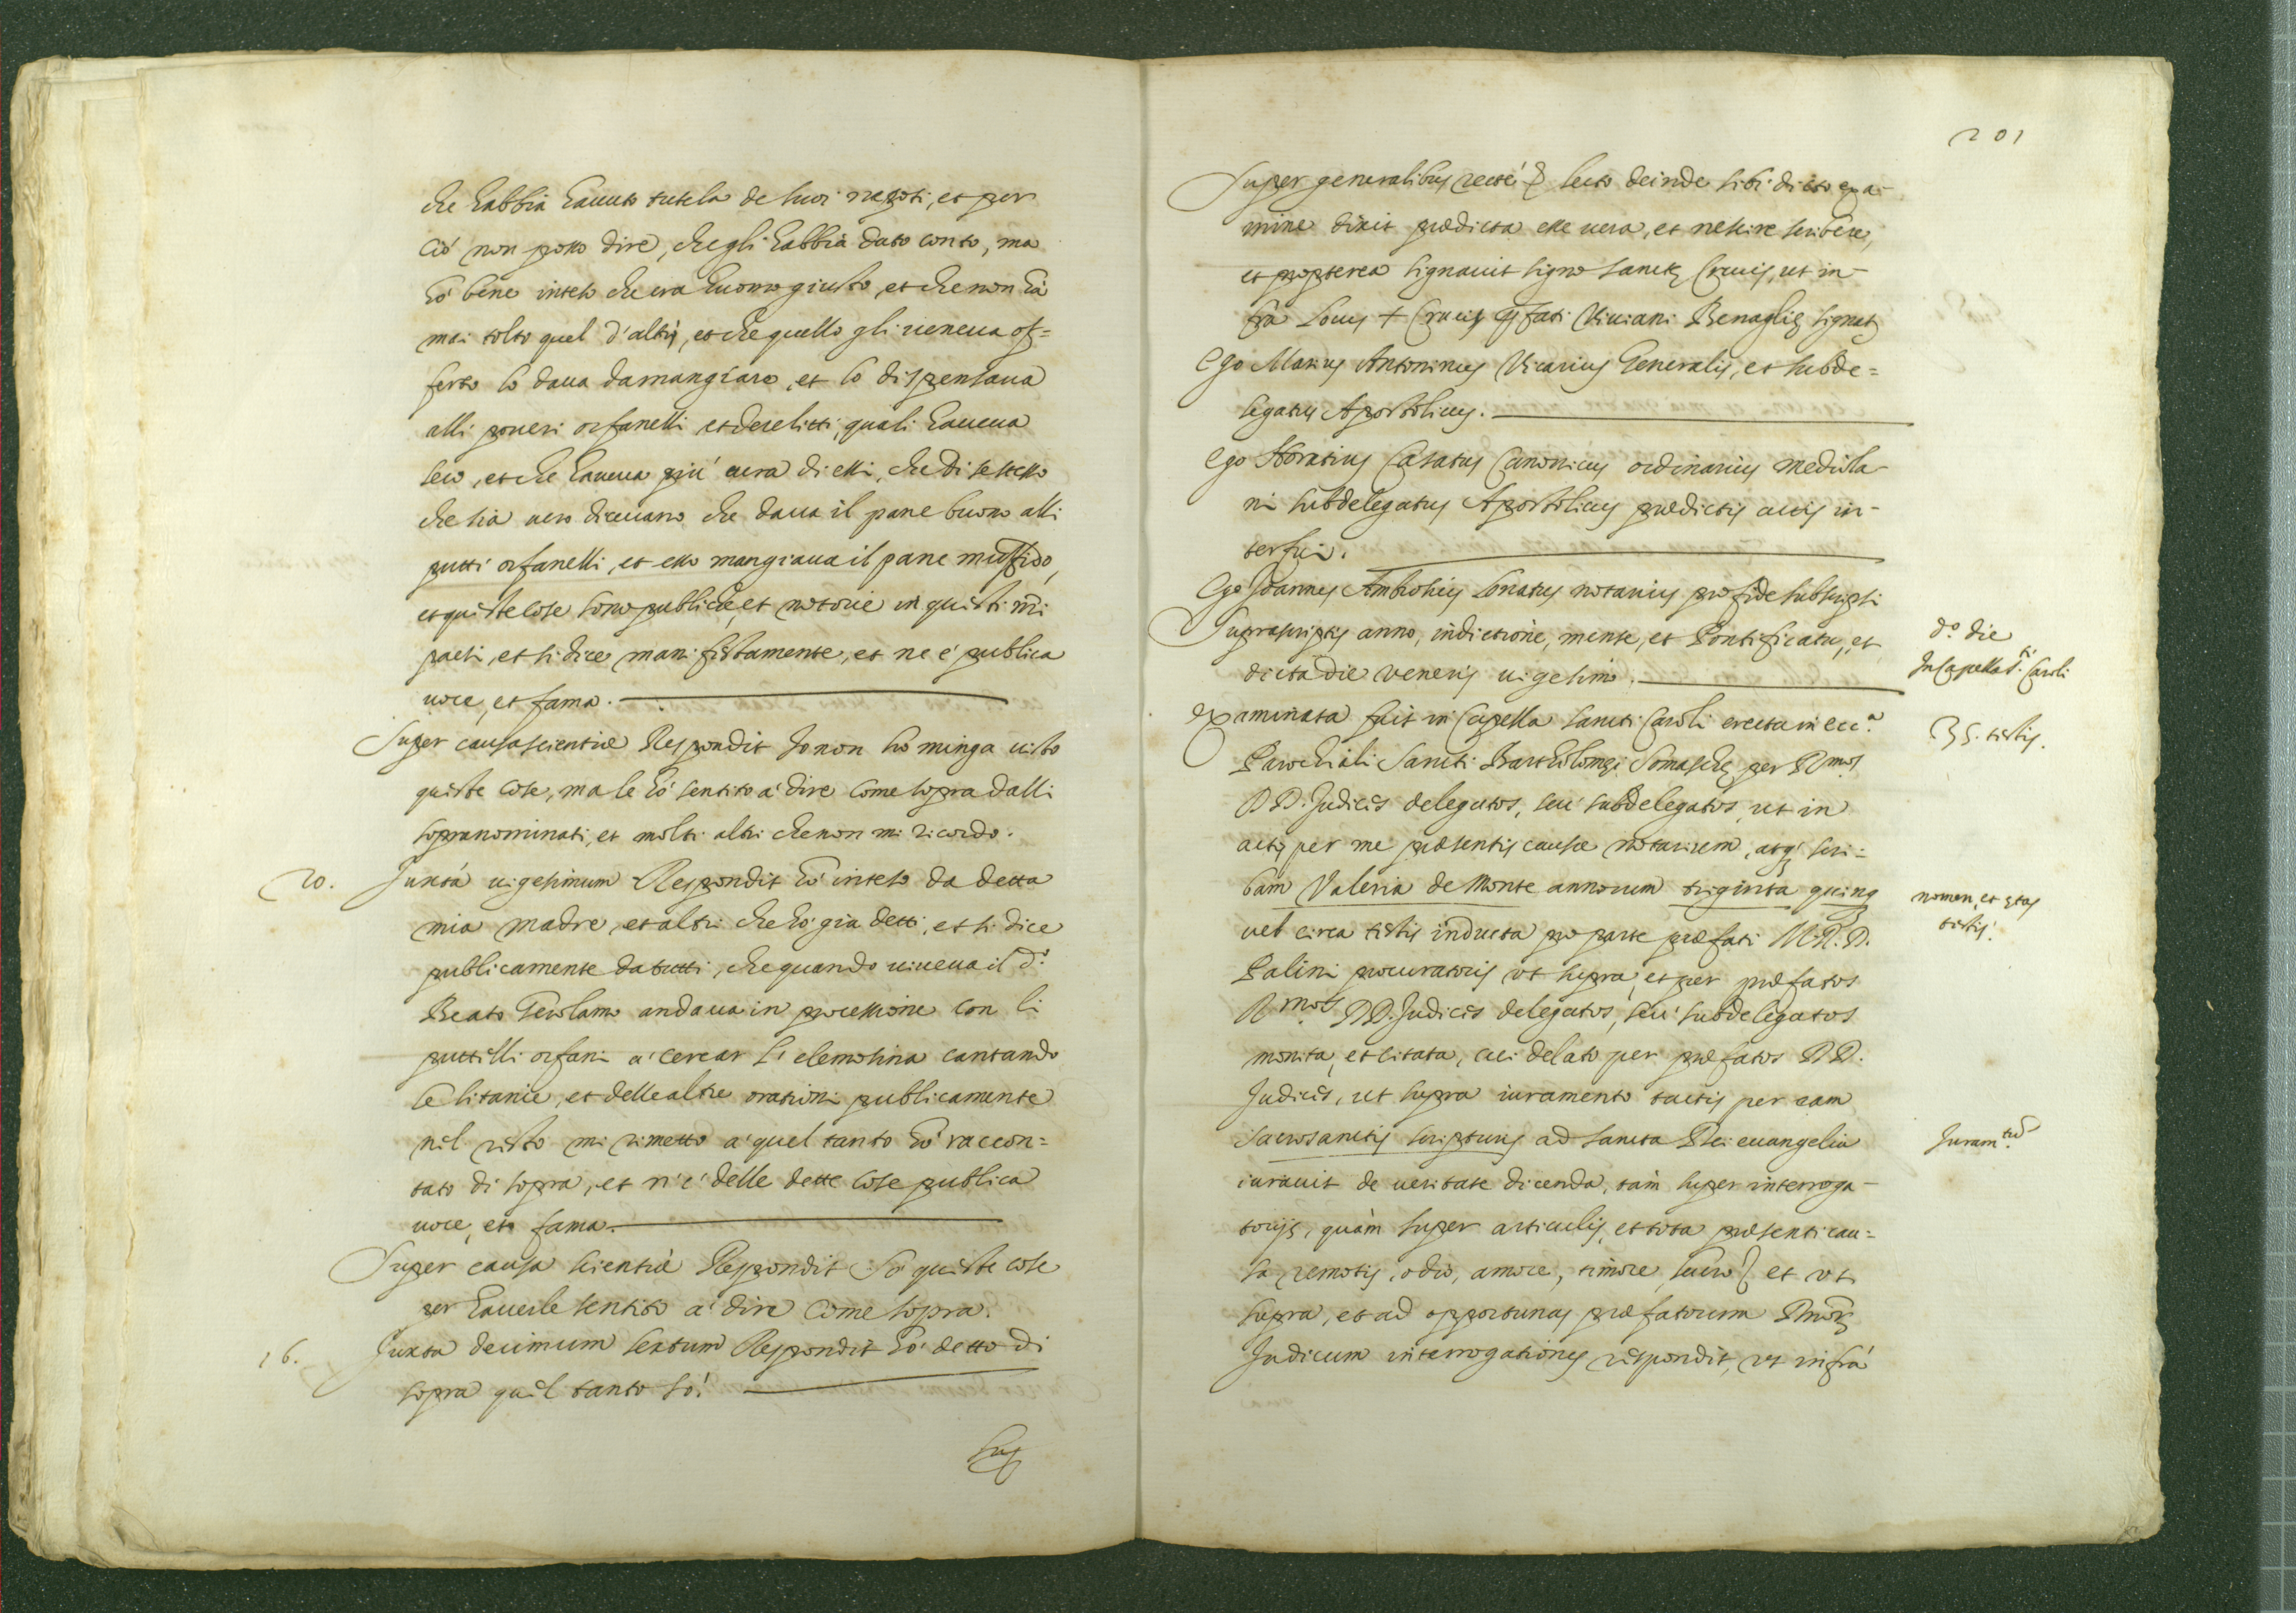 che habbia hauuto tutela de suoi negoti, et per
ciò non posso dire, che gli habbia dato conto, ma
hò bene inteso che era huomo giusto, et che non hà
mai tolto quel d'altri, et che quello gli ueneua of=
ferto lo daua da mangiare, et lo dispensaua
alli poueri orfanelli et derelitti, quali haueua
seco, et che haueua più cura di essi, che di se stesso
che sia uero diceuano che daua il pane buono alli
putti orfanelli, et esso mangiaua il pane muffido,
et queste cose sono publiche, et notorie in questi nri
paesi, et si dice manifestamente, et ne è publica
uoce, et fama.
Super causa scientiæ Respondit Io non ho minga uisto
queste cose, ma le hò sentito à dire come sopra dalli
sopranominati, et molti altri che non mi ricordo.
20. Juxtà uigesimum Respondit hò inteso da detta
mia madre, et altri che hò già detti, et si dice
publicamente da tutti, che quando uiueua il d.o
Beato Gerolamo andaua in processione con li
puttelli orfani à cercar l'elemosina cantando
le litanie, et delle altre orationi publicamente
nel resto mi rimetto à quel tanto hò raccon=
tato di sopra, et n'è delle dette cose publica
uoce, et fama.
Super causa scientiæ Respondit Sò queste cose
per hauerle sentito à dire come sopra.
16. Juxta decimum sextum Respondit hò detto di
sopra quel tanto sò.
Sup
201
Super generalibus recte &c lecto deinde sibi dicto exa-
mine dixit prædicta esse uera, et nescire scribere,
et propterea signauit signo sanctę Crucis, ut in-
fra Locus + Crucis pfati Viuiani Benaglię signatę
Ego Marius Antoninus Vicarius Generalis, et subde=
legatus Apostolicus.
Ego Horatius Casatus Canonicus ordinarius mediola-
ni subdelegatus Apostolicus prædictis actis in-
terfui.
Ego Joannes Ambrosius Conatus notarius pro fide subscripsi
Suprascriptis anno, indictione, mense, et Pontificatu, et
dicta die veneris uigesimo.
d.o die
In Capella S.ti Caroli
Examinata fuit in Capella sancti Caroli erecta in ecc.a
35. testis.
Parochiali Sancti Bartholomęi Somaschę per R.mos
DD. Judices delegatos, seù subdelegatos, ut in
actis per me præsentis causæ notarium, atq; scri-
bam Valeria de Monte annorum triginta quinq;
nomen, et ętas
testis.
uel circa testis inducta pro parte præfati M. R. D.
Palini procuratoris ut supra, et per præfatos
R.mos DD. Judices delegatos, seù subdelegatos
monita, et citata, cui delato per præfatos DD.
Judices, ut supra iuramento tactis per eam
sacrosanctis scripturis ad sancta Dei euangelia
Juram.tum
iurauit de ueritate dicenda, tàm super interroga-
torijs, quàm super articulis, et tota præsenti cau=
sa remotis, odio, amore, timore, lucro &c et ut
supra, et ad opportunas præfatorum Rmorę
Judicum interrogationes respondit, ut infrà